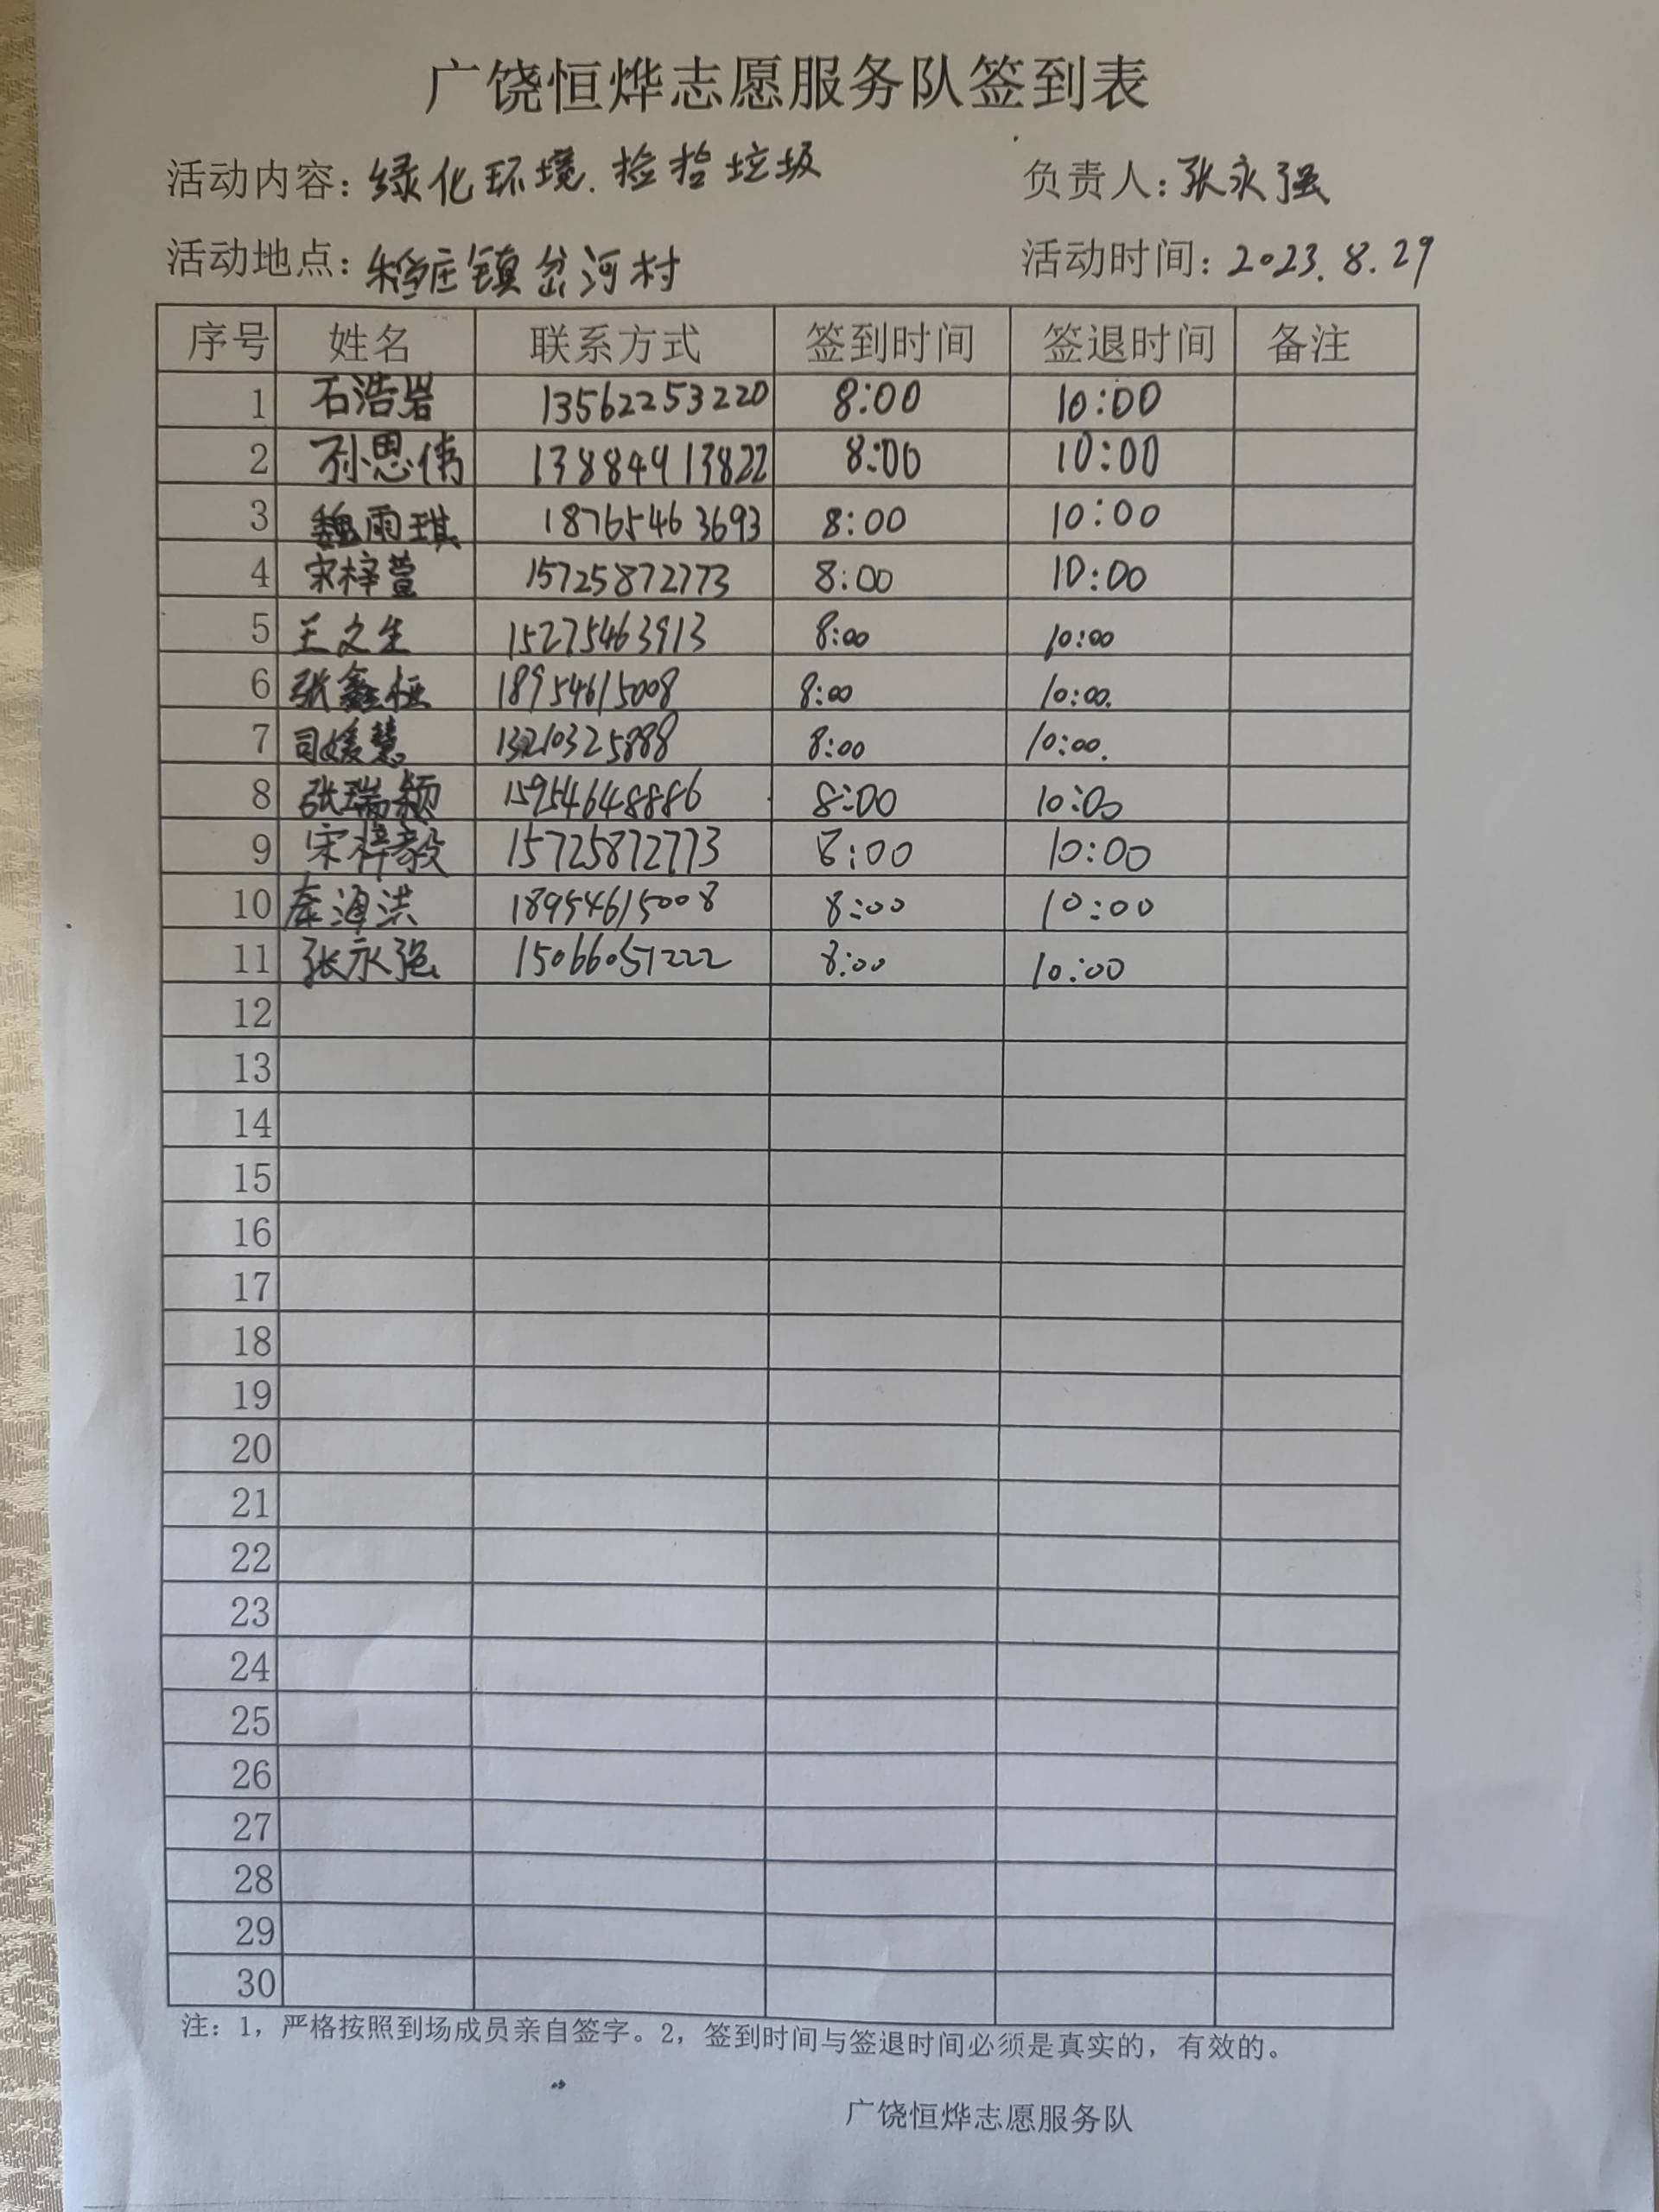 广饶恒烨志愿服务队签到表
活动内容：绿化环境.捡拾垃圾 负责人：张永强
活动地点：稻庄镇岔河村 活动时间：2023.8.29
序号 姓名 联系方式 签到时间 签退时间 备注
1 石浩岩 13562253220 8:00 10:00
2 孙思倩 13884913822 8:00 10:00
3 魏雨琪 18765463693 8:00 10:00
4 宋梓萱 15725872773 8:00 10:00
5 王文生 15275463913 8:00 10:00
6 张鑫恒 18954615008 8:00 10:00.
7 司媛慧 13210325888 8:00 10:00.
8 张瑞颖 15954648886 8:00 10:00
9 宋梓毅 15725872773 8:00 10:00
10 海洪 18954615008 8:00 10:00
11 张永强 15066051222 8:00 10:00
12
13
14
15
16
17
18
19
20
21
22
23
24
25
26
27
28
29
30
注：1，严格按照到场成员亲自签字。2，签到时间与签退时间必须是真实的，有效的。
广饶恒烨志愿服务队